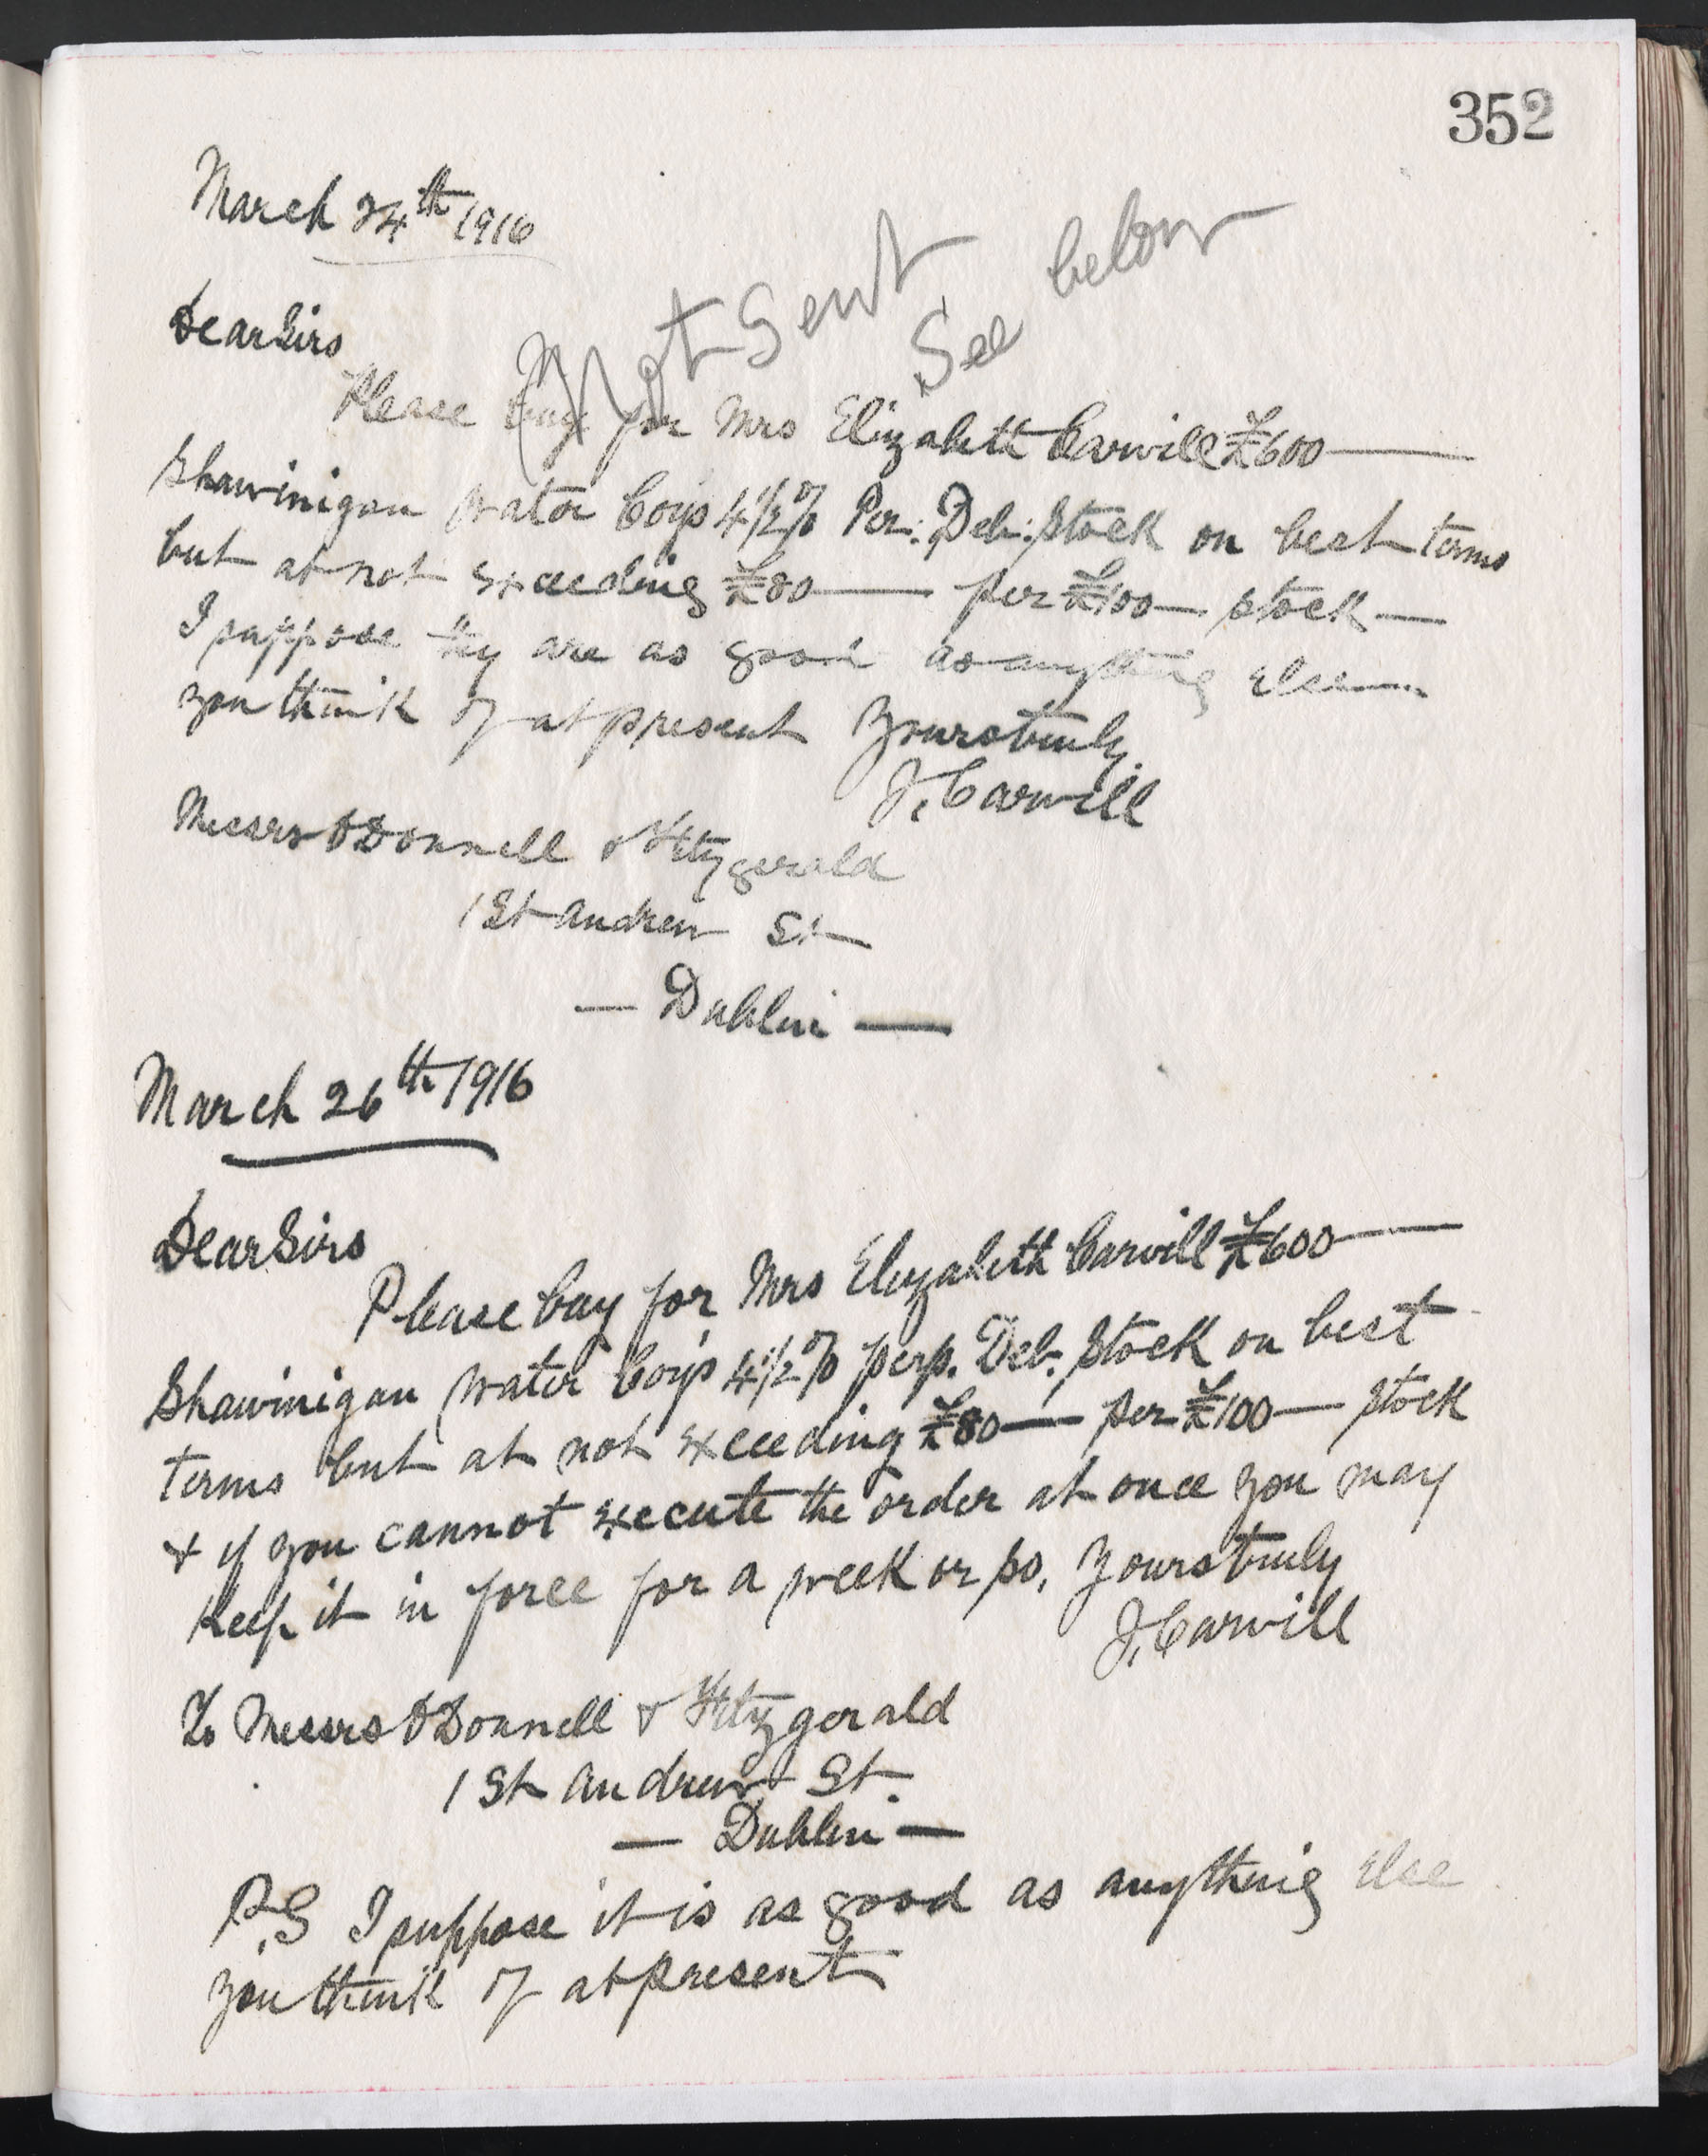 352
March 24th 1916
Not Sent
See below
Dear Sirs
Please buy for Mrs Elizabeth Carvill £600—
Shawinigan Water Coys 4½% Per: Deb: Stock on best terms
but at not exceeding £80— per £100— stock—
I suppose they are as good as anything else—
you think of at present Yours truly
J. Carvill
Messrs O'Donnell & Fitzgerald
1 St Andrew St
— Dublin —
March 26th 1916
Dear Sirs
Please buy for Mrs Elizabeth Carvill £600—
Shawinigan Water Coys 4½% perp. Deb. Stock on best
terms but at not exceeding £80— per £100— stock
& if you cannot execute the order at once you may
keep it in force for a week or so. Yours truly
J. Carvill
To Messrs O'Donnell & Fitzgerald
1 St Andrew St.
— Dublin —
P.S I suppose it is as good as anything else
you think of at present